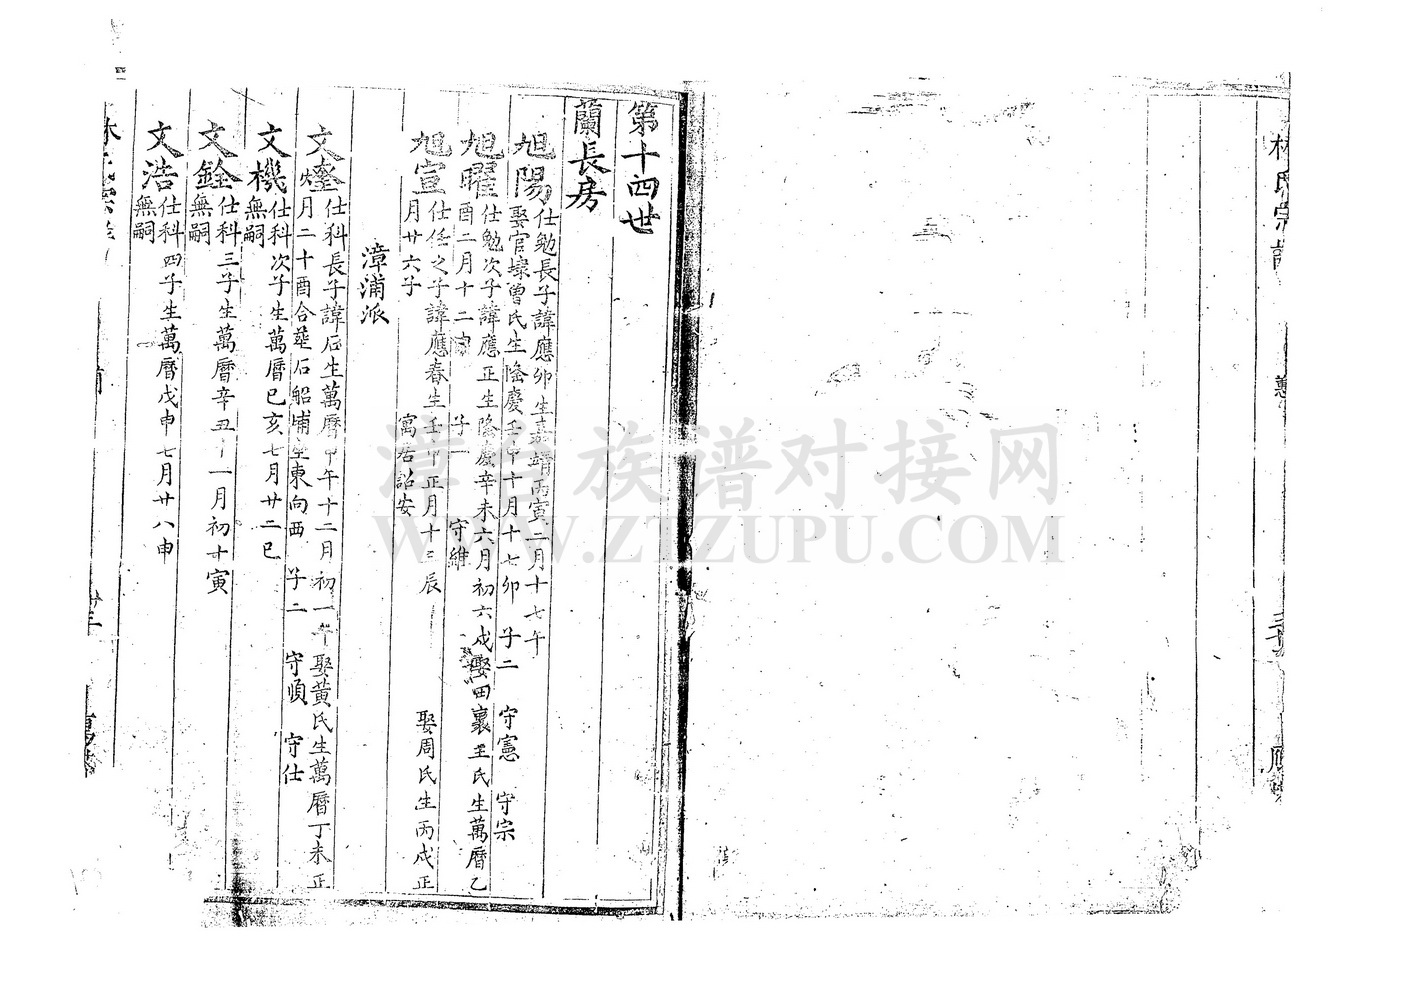 林氏宗譜
惠
第十四世
蘭長房
旭陽 仕勉長子諱應卯生嘉靖丙寅二月十七午
娶官埭曾氏生隆慶壬申十月十七卯 子二 守憲 守宗
旭曜 仕勉次子諱應正生隆慶辛未六月初六戌娶田裏王氏生萬曆乙
酉二月十二 子一 守維
旭宣 仕任之子諱應春生壬申正月十三辰 娶周氏生丙戌正
月廿六子 寓居詔安
漳浦派
文 仕科長子諱石生萬曆甲午十二月初一午娶黃氏生萬曆丁未正
月二十酉合葬石船埔坐東向西 子二 守順 守仕
文機 仕科次子生萬曆己亥七月廿二巳
無嗣
文銓 仕科三子生萬曆辛丑十一月初十寅
無嗣
文浩 仕科四子生萬曆戊申七月廿八申
無嗣
漳台族谱对接网
WWW.ZTZUPU.COM